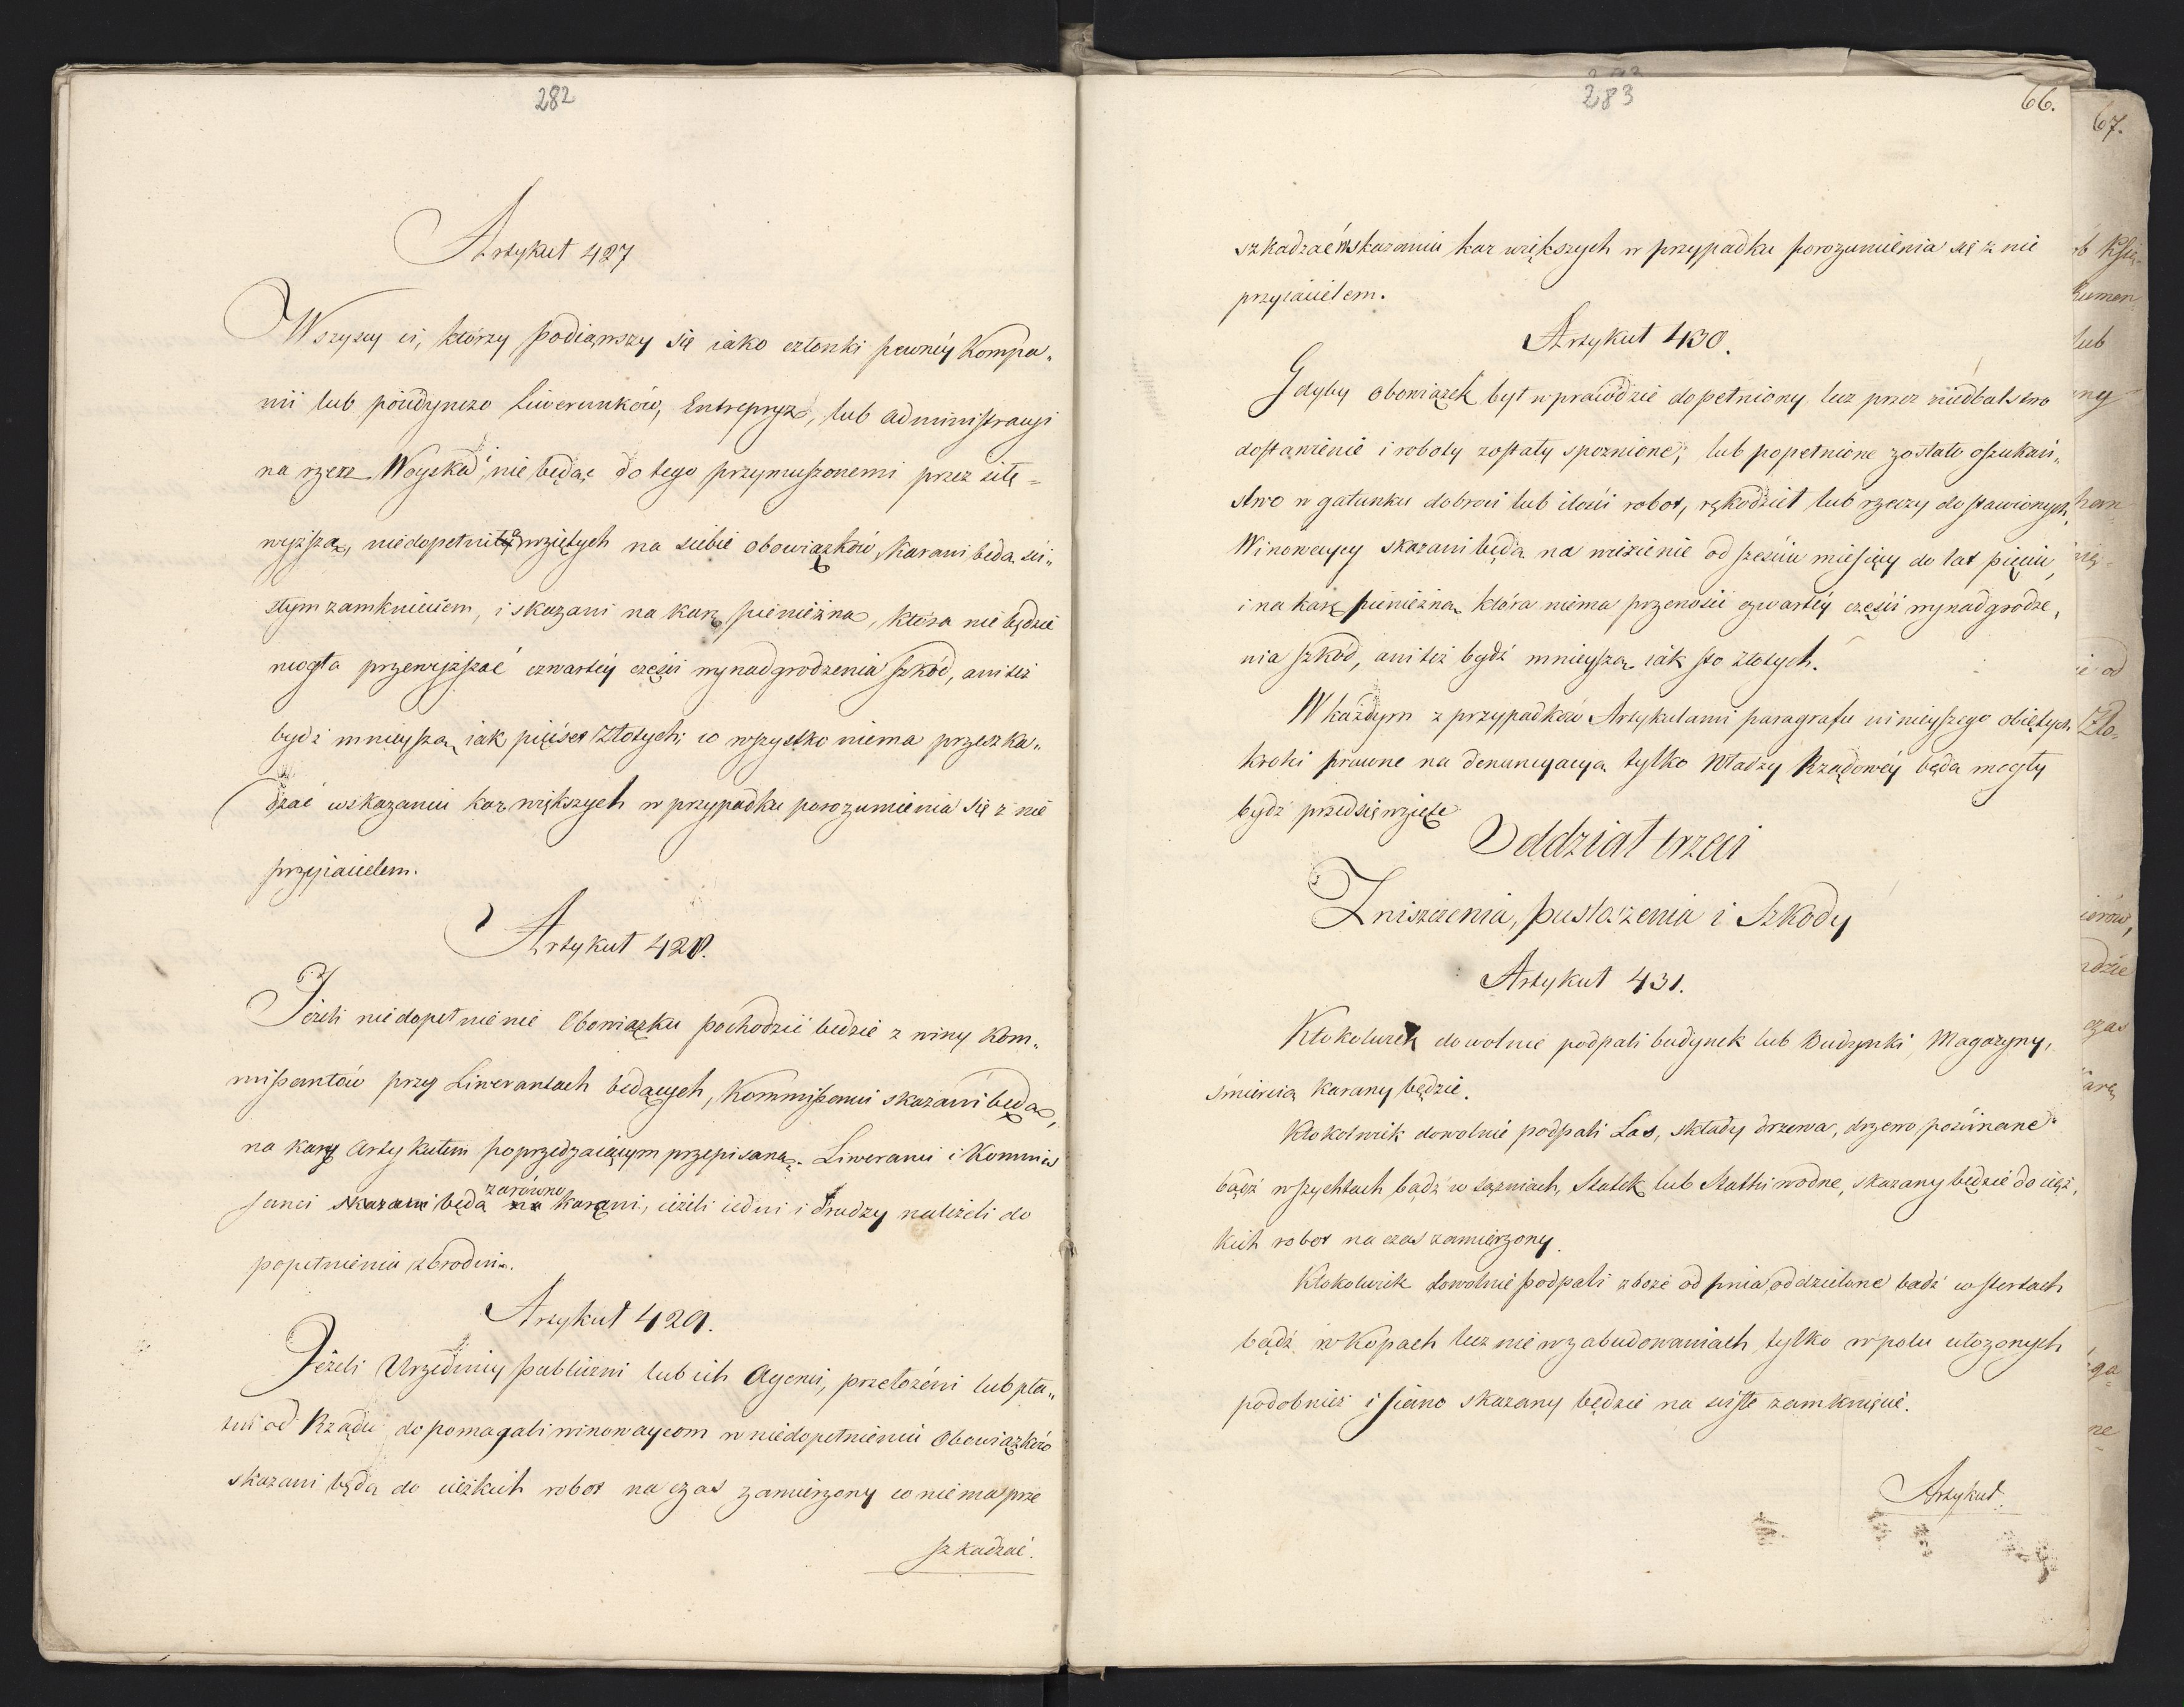 282
Artykuł 427
Wszyscy ci, którzy podiąwszy się iako członki pewnéy Kompa„
nii lub poiedynczo Liwerunków, Entrepryz, lub administracyi
na rzecz Woyska, nie będąc do tego przymuszonemi przez siłę
wyższą, niedopełnili wziętych na siebie obowiązków, karani będą ści„
słym zamknięciem, i skazani na karę pieniężną, która nie będzie
mogła przewyższać czwartéy części wynadgrodzenia szkód, ani téż
bydź mnieyszą, iak pięćset Złotych; co wszystko niema przeszka„
dzać wskazaniu kar większych w przypadku porozumienia się z nie
przyiacielem.
Artykuł 428.
Jeżeli niedopełnienie Obowiązku pochodzić będzie z winy Kom„
missantów przy Liwerantach będących, Kommissanci skazani będą,
na karę Artykułem poprzedzaiącym przepisaną. Liweranci i Kommis
sanci skazani będą zarówno na karani, ieżeli iedni i drudzy należeli do
popełnienia zbrodni.
Artykuł 429.
Jeżeli Urzędnicy publiczni lub ich Agenci, przełożeni lub pła„
tni od Rządu dopomagali winowaycom w niedopełnieniu Obowiązków
skazani będą do ciężkich robot na czas zamierzony co niema prze
szkadzać.
283
66.
szkadzać wskazaniu kar większych w przypadku porozumienia się z nie
przyiacielem.
Artykuł 430.
Gdyby obowiązek był wprawdzie dopełniony lecz przez niedbalstwo
dostawienie i roboty zostały spoznione; lub popełnione zostało oszukań„
stwo w gatunku dobroci lub ilości robot, rękodzieł lub rzeczy dostawionych,
Winowaycy skazani będą na więzienie od sześciu miesięcy do lat pięciu,
i na karę pieniężną która niema przenosić czwartéy części wynadgrodze„
nia szkód, ani téż bydź mnieyszą iak sto złotych.
W każdym z przypadków Artykułami paragrafu ninieyszego obiętych
kroki prawne na denuncyacyą tylko Władzy Rządowéy będą mogły
bydź przedsięwzięte
Oddział trzeci
Zniszczenia, pustoszenia i Szkody
Artykuł 431.
Ktokolwiek dowolnie podpali budynek lub Budynki, Magazyny,
śmiercią karany będzie.
Ktokolwiek dowolnie podpali Las, składy drzewa, drzewo pościnane
bądź w szychtach bądź w sążniach, Statek lub Statki wodne, skazany będzie do cięż„
kich robot na czas zamierzony.
Ktokolwiek dowolnie podpali zboże od pnia oddzielone bądź w stertach
bądź w kopach lecz nie w zabudowaniach tylko w polu ułożonych
podobnież i siano skazany będzie na ścisłe zamknięcie.
Artykuł.
67.